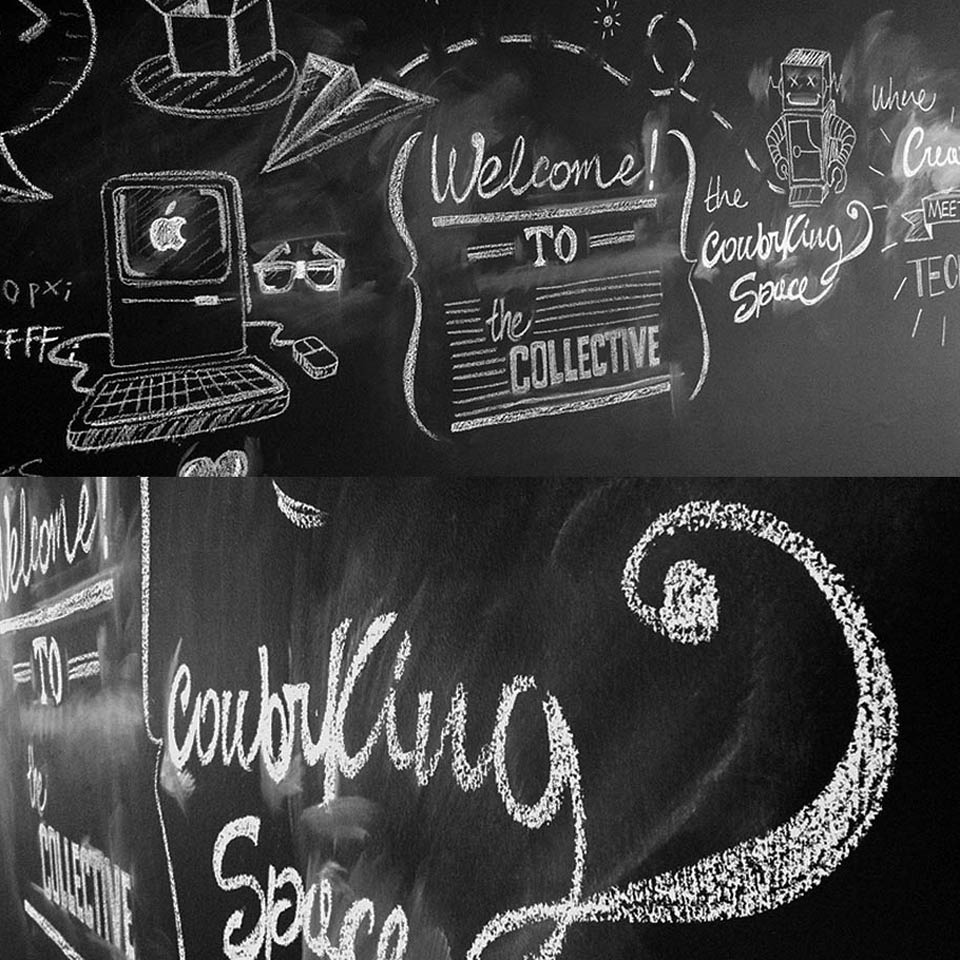 Welcome!
TO
the
COLLECTIVE
the
CowbrKing
Space
where
Crea
MEET
TECH
0px;
FFF;
Welcome!
TO
the
COLLECTIVE
CowbrKing
Space